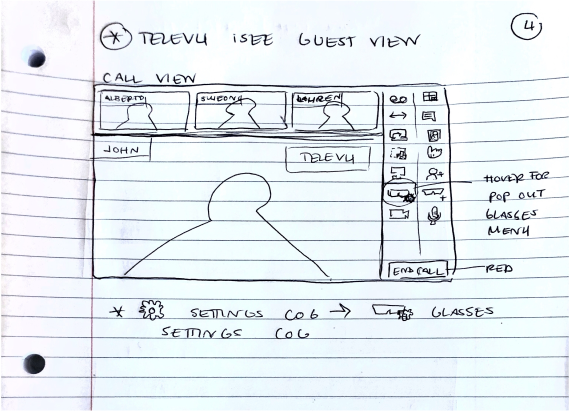 * TELEVU iSEE GUEST VIEW
4
CALL VIEW
ALBERTO SIMEON LAUREN
JOHN
TELEVU
HOVER FOR
POP OUT
GLASSES
MENU
END CALL
RED
* SETTINGS COG → GLASSES
SETTINGS COG